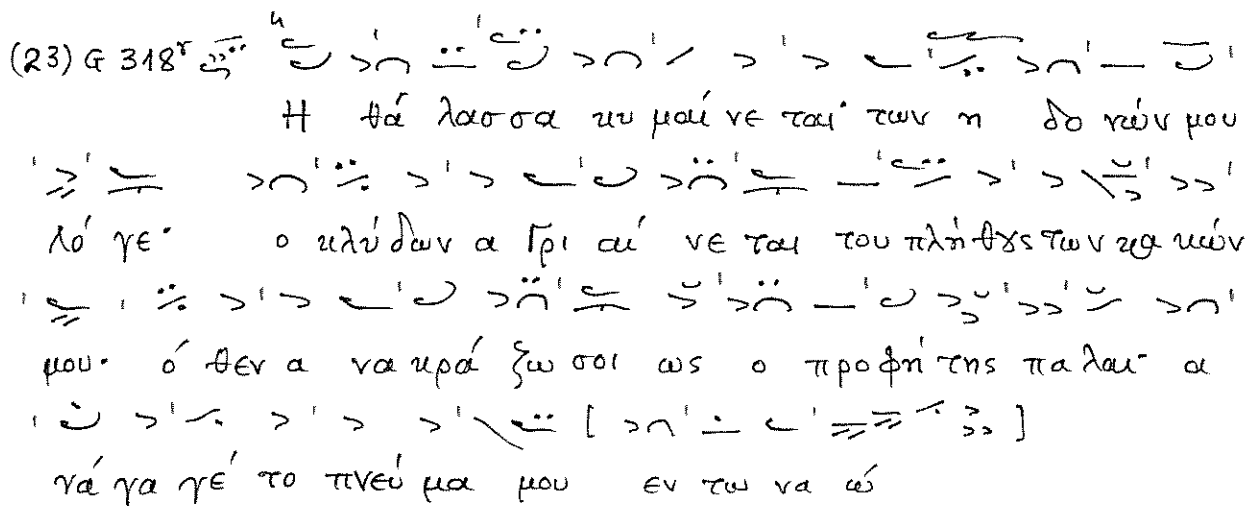 (23) G 318ʳ
Η θά λασσα κυ μαί νε ται· των η δο νών μου
λό γε· ο κλύ δων α γρι αί νε ται του πλή θȣς των κα κών
μου· ό θεν α να κρά ζω σοι ως ο προ φή της πα λαι· α
νά γα γέ το πνεύ μα μου εν τω να ώ